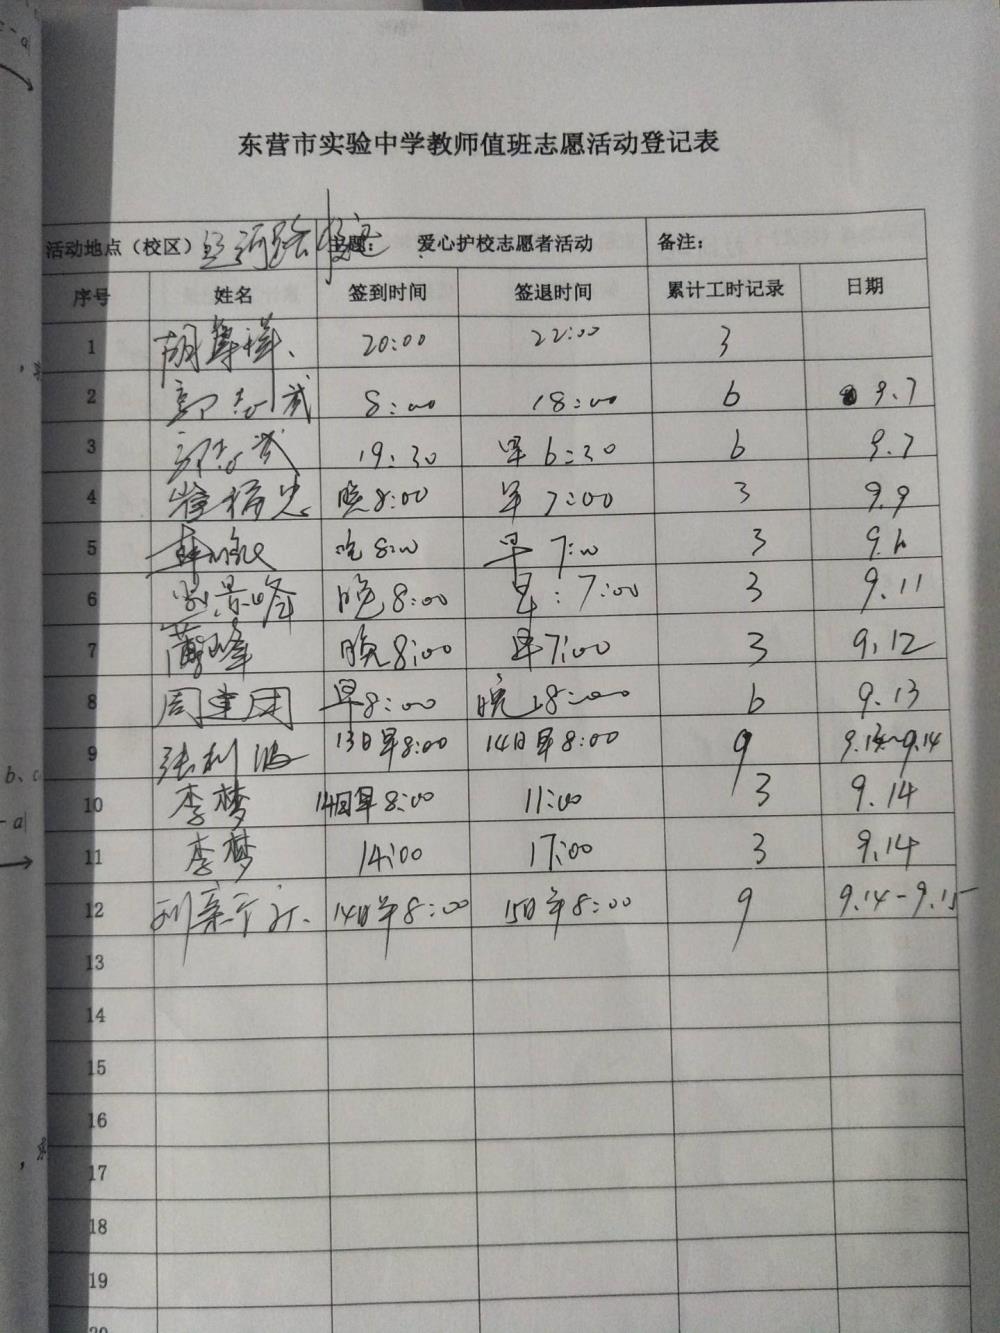 东营市实验中学教师值班志愿活动登记表
活动地点（校区） 主题： 爱心护校志愿者活动 备注：
序号 姓名 签到时间 签退时间 累计工时记录 日期
1 20:00 22:00 3
2 郭志武 8:00 18:00 6 9.7
3 郭志武 19:30 早6:30 6 9.7
4 晚8:00 早7:00 3 9.9
5 晚8:00 早7:00 3 9.6
6 景峰 晚8:00 早:7:00 3 9.11
7 晚8:00 早7:00 3 9.12
8 周建国 早8:00 晚18:00 6 9.13
9 张利波 13日早8:00 14日早8:00 9 9.13~9.14
10 李梦 14日早8:00 11:00 3 9.14
11 李梦 14:00 17:00 3 9.14
12 14日早8:00 15日早8:00 9 9.14-9.15
13
14
15
16
17
18
19
20